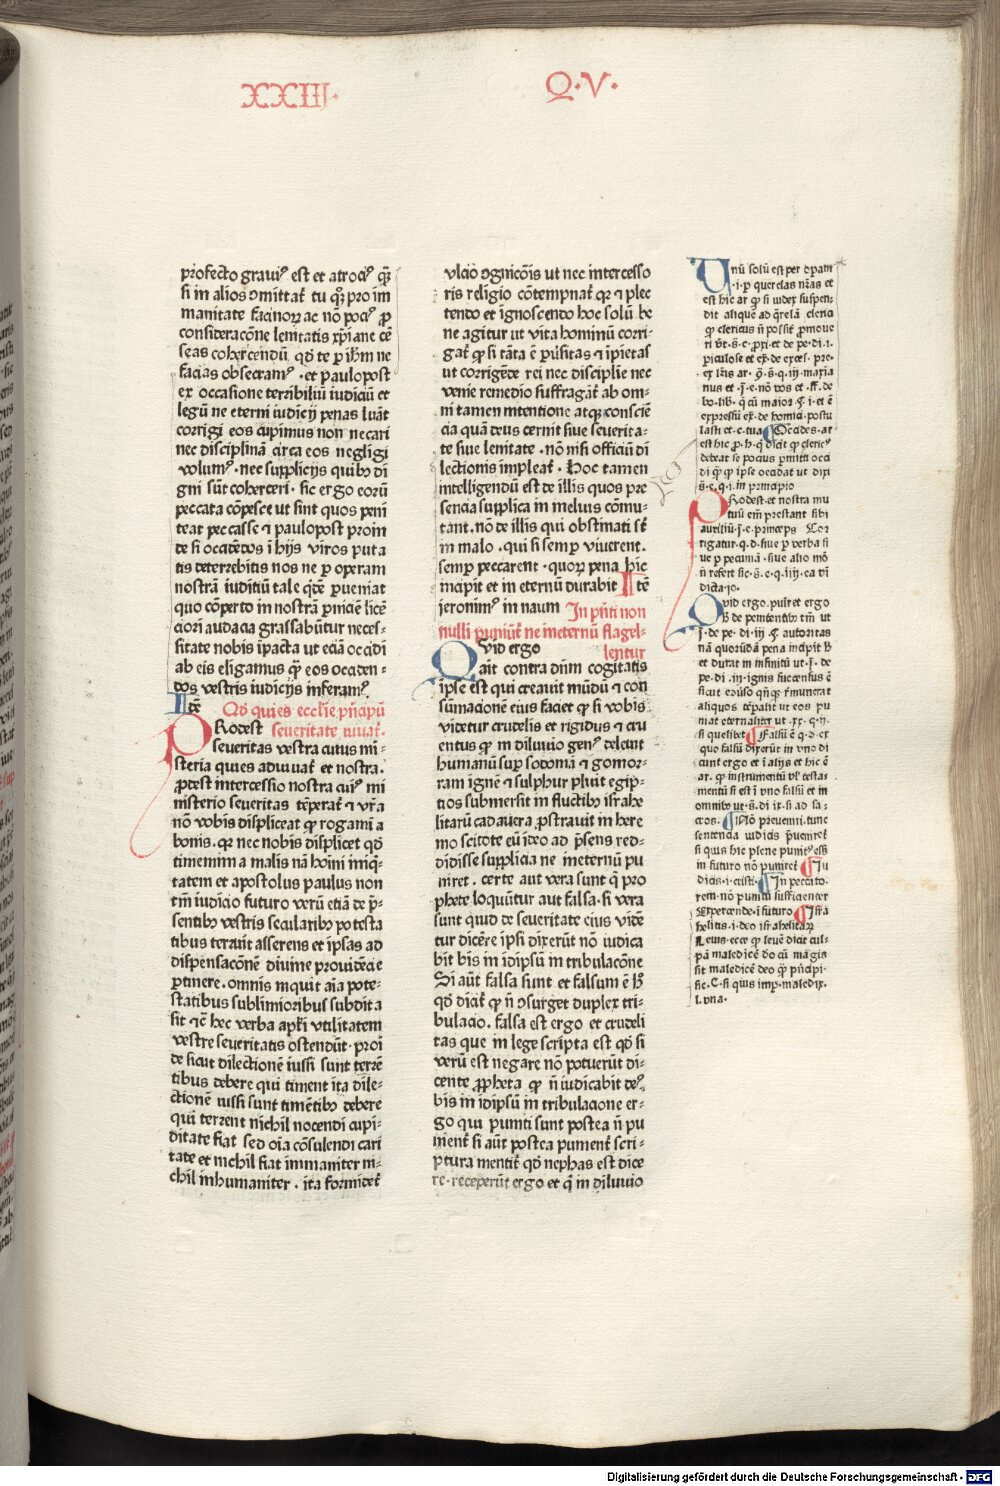 XXIII· Q·V·
profecto graui⁹ est et atroci⁹ qm̄
si in alios om̄ittat̄ tu qꝫ pro im
manitate facinoꝝ ac nō poci⁹ ꝓ
consideracōne lenitatis xp̄iane cē
seas cohercendū qd̄ te p ih̄m ne
facias obsecram⁹ · et paulopost
ex occasione terribiliū iudiciū et
legū ne eterni iudicij penas luāt
corrigi eos cupimus non necari
nec disciplinā circa eos negligi
volum⁹ · nec supplicijs quibꝫ di
gni sūt coherceri · sic ergo eorū
peccata cōpesce ut sint quos peni
teat peccasse ⁊ paulopost proin
de si occidēdos ī hijs viros puta
tis deterrebitis nos ne p operam
nostrā iuditiū tale qd̄e pueniat
quo cōperto in nostrā pniciē licē
ciori audacia grassabūtur neces⸗
sitate nobis īpacta ut eciā occidi
ab eis eligamus qm̄ eos occiden⸗
dos vestris iudicijs inferam⁹
Itē Qd̄ quies ecclīe pn̄cipū
PRodest seueritate iuuat̄·
seueritas vestra cuius mi⸗
steria quies adiuuat̄ et nostra.
ꝓdest intercessio nostra cui⁹ mi
nisterio seueritas tēperat̄ ⁊ vr̄a
nō vobis displiceat ꝙ rogami a
bonis. qꝛ nec nobis displicet qd̄
timemini a malis nā hoini iniq⸗
tatem et apostolus paulus non
tm̄ iudicio futuro verū etiā de p̄⸗
sentibꝫ vestris secularibꝫ potesta
tibus teruit asserens et ipsas ad
dispensacōnē diuine prouidēcie
ptinere. omnis inquit aīa pote⸗
statibus sublimioribus subdita
sit ⁊c̄ hec verba apl̄i vtilitatem
vestre seueritatis ostendūt · proī
de sicut dilectionē iussi sunt terrē
tibus debere qui timent ita dile⸗
ctionē iussi sunt timētibꝫ debere
qui terrent nichil nocendi cupi⸗
ditate fiat sed oīa cōsulendi cari
tate et nichil fiat immaniter ni⸗
chil inhumaniter · ita formidet̄
vlcio ꝯgnicōis ut nec intercesso
ris religio cōtempnat̄ qꝛ ⁊ plec
tendo et ignoscendo hoc solū be
ne agitur ut vita hominū corri⸗
gat̄ ꝙ si tāta ē puersitas ⁊ ipietas
ut corrigēde rei nec discipline nec
venie remedio suffragat̄ ab om⸗
ni tamen intentione atqꝫ conscie
cia quā deus cernit siue seuerita⸗
te siue lenitate · nō nisi officiū di
lectionis impleat̄ · Hoc tamen
intelligendū est de illis quos pre
sencia supplicia in melius cōmu⸗
tant. nō de illis qui obstinati sūt
in malo · qui si semp viuerent.
semp peccarent · quoꝝ pena hic
incipit et in eternū durabit Itē
ieronim⁹ in naum In pn̄ti non
nulli puniūt̄ ne ineternū flagel⸗
Qvid ergo lentur
ait contra dn̄m cogitatis
ipse est qui creauit mūdū ⁊ con
sūmacionē eius faciet ꝙ si vobis
videtur crudelis et rigidus ⁊ cru
entus ꝙ in diluuio gen⁹ deleuit
humanū sup sodomā ⁊ gomor⸗
ram ignē ⁊ sulphur pluit egip⸗
tios submersit in fluctibꝫ israhe
litarū cadauera ꝓstrauit in here
mo scitote eū ideo ad p̄sens red⸗
didisse supplicia ne ineternū pu
niret. certe aut vera sunt q̄ pro
phete loquūtur aut falsa. si vera
sunt quid de seueritate eius vidē
tur dicere ipsi dixerūt nō iudica
bit bis in idipsū in tribulacōne
Si aūt falsa sunt et falsum ē hꝫ
qd̄ dicit̄ ꝙ n̄ ꝯsurget duplex tri⸗
bulacio. falsa est ergo et crudeli
tas que in lege scripta est qd̄ si
verū est negare nō potuerūt di⸗
cente ꝓpheta ꝙ n̄ iudicabit de⁹
bis in idipsū in tribulacione er⸗
go qui puniti sunt postea n̄ pu
nient̄ si aūt postea punient̄ scri⸗
ptura mentit̄ qd̄ nephas est dice
re · receperūt ergo et q̄ in diluuio
Unū solū est per opam
·i·p querelas nr̄as et
est hic ar ꝙ si iudex suspen⸗
dit aliquē ad q̄relā clerici
ꝙ clericus n̄ possit ꝓmoue
expressū ex· de homici· postu
lasti et·c·tua ¶ Occides·ar
est hic ꝓ·h·q̄ dicit ꝙ cleric⁹
debeat se pocius pmitti occi
di q̄ ꝙ ipse occidat ut dixi
s̄·e·q·i·in principio
PRodest·et nostra mu
tuū em̄ prestant sibi
auxiliū·j·e·princeps Cor
rigatur·q·d·siue p verba si
ue p pecuniā·siue alio mō
n̄ refert sic·s̄·e·q·iiij·ea vī
dicta·jo·
Qvid ergo·puīret ergo
hꝫ de penitentibꝫ tm̄ ut
j·de pe·di·iij·§ autoritas
nā quorūdā pena incipit hꝫ
et durat in infinitū ut·j·de
pe·di·iij·ignis succensus ē
aliquos tēpalit̄ ut eos pu
niat eternaliter ut·xx·q·ij·
si quelibet ¶ Falsū ē q·o·ex
quo falsū dixerūt in vno di
cunt ergo et ī alijs et hic ē
ar·ꝙ instrumentū vl̄ testa⸗
mentū si est ī vno falsū et in
omnibꝫ ut·s̄·di ix·si ad sa⸗
cros· ¶ Nō preuenri·tunc
sentencia iudicis p̄uenret̄
si quis hic plene punit⁹ ess̄
in futuro nō puniret̄ ¶ Iu
dicis·i·cristi· ¶ In peccato⸗
rem·nō punitū sufficienter
Expectende·ī futuro ¶ Isra
helitis·i·deo israhelitaꝝ
Leuis·ecce ꝙ leuē dicit cul⸗
pā maledicē do cū magis
sit maledicē deo q̄ pn̄cipi·
sic·C·si quis imp·maledix·
l·vna·
Digitalisierung gefördert durch die Deutsche Forschungsgemeinschaft · DFG